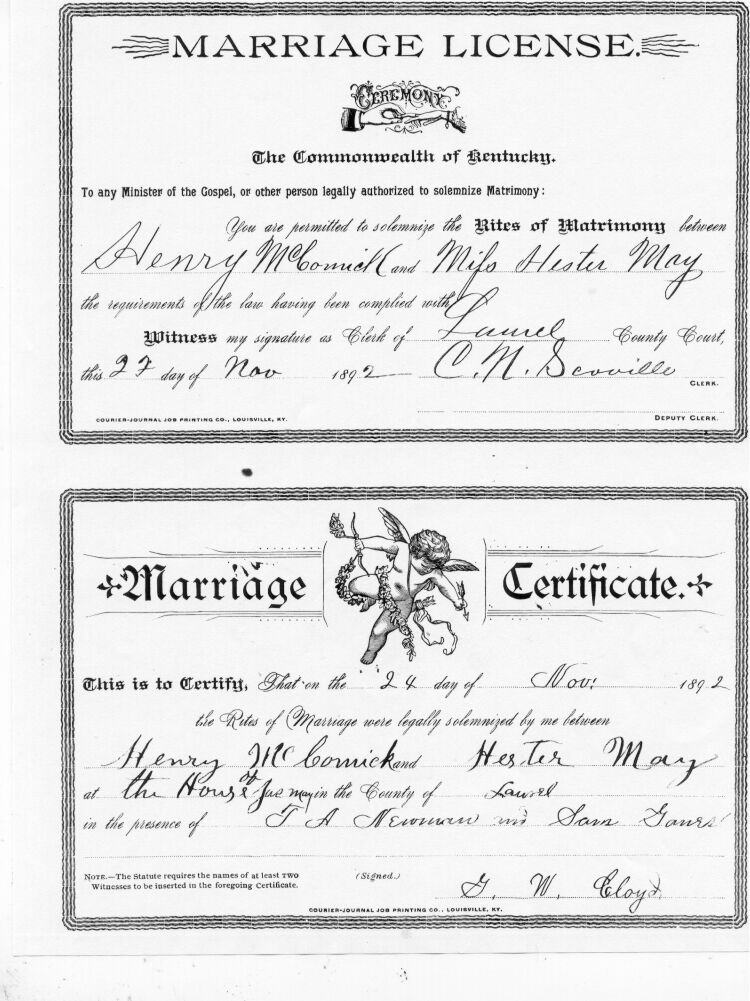 MARRIAGE LICENSE.
CEREMONY
The Commonwealth of Kentucky.
To any Minister of the Gospel, or other person legally authorized to solemnize Matrimony:
You are permitted to solemnize the Rites of Matrimony between
Henry McComick and Miss Hester May
the requirements of the law having been complied with
Witness my signature as Clerk of Laurel County Court,
this day of Nov 1892 C. N. Scoville
CLERK.
COURIER-JOURNAL JOB PRINTING CO., LOUISVILLE, KY. DEPUTY CLERK.
Marriage Certificate.
This is to Certify, That on the 24 day of Nov. 1892
the Rites of Marriage were legally solemnized by me between
Henry McComick and Hester May
at the House of Jas May in the County of Laurel
in the presence of T A Newman and Sam
NOTE.—The Statute requires the names of at least TWO (Signed.)
Witnesses to be inserted in the foregoing Certificate.
G. W. Cloyd
COURIER-JOURNAL JOB PRINTING CO., LOUISVILLE, KY.